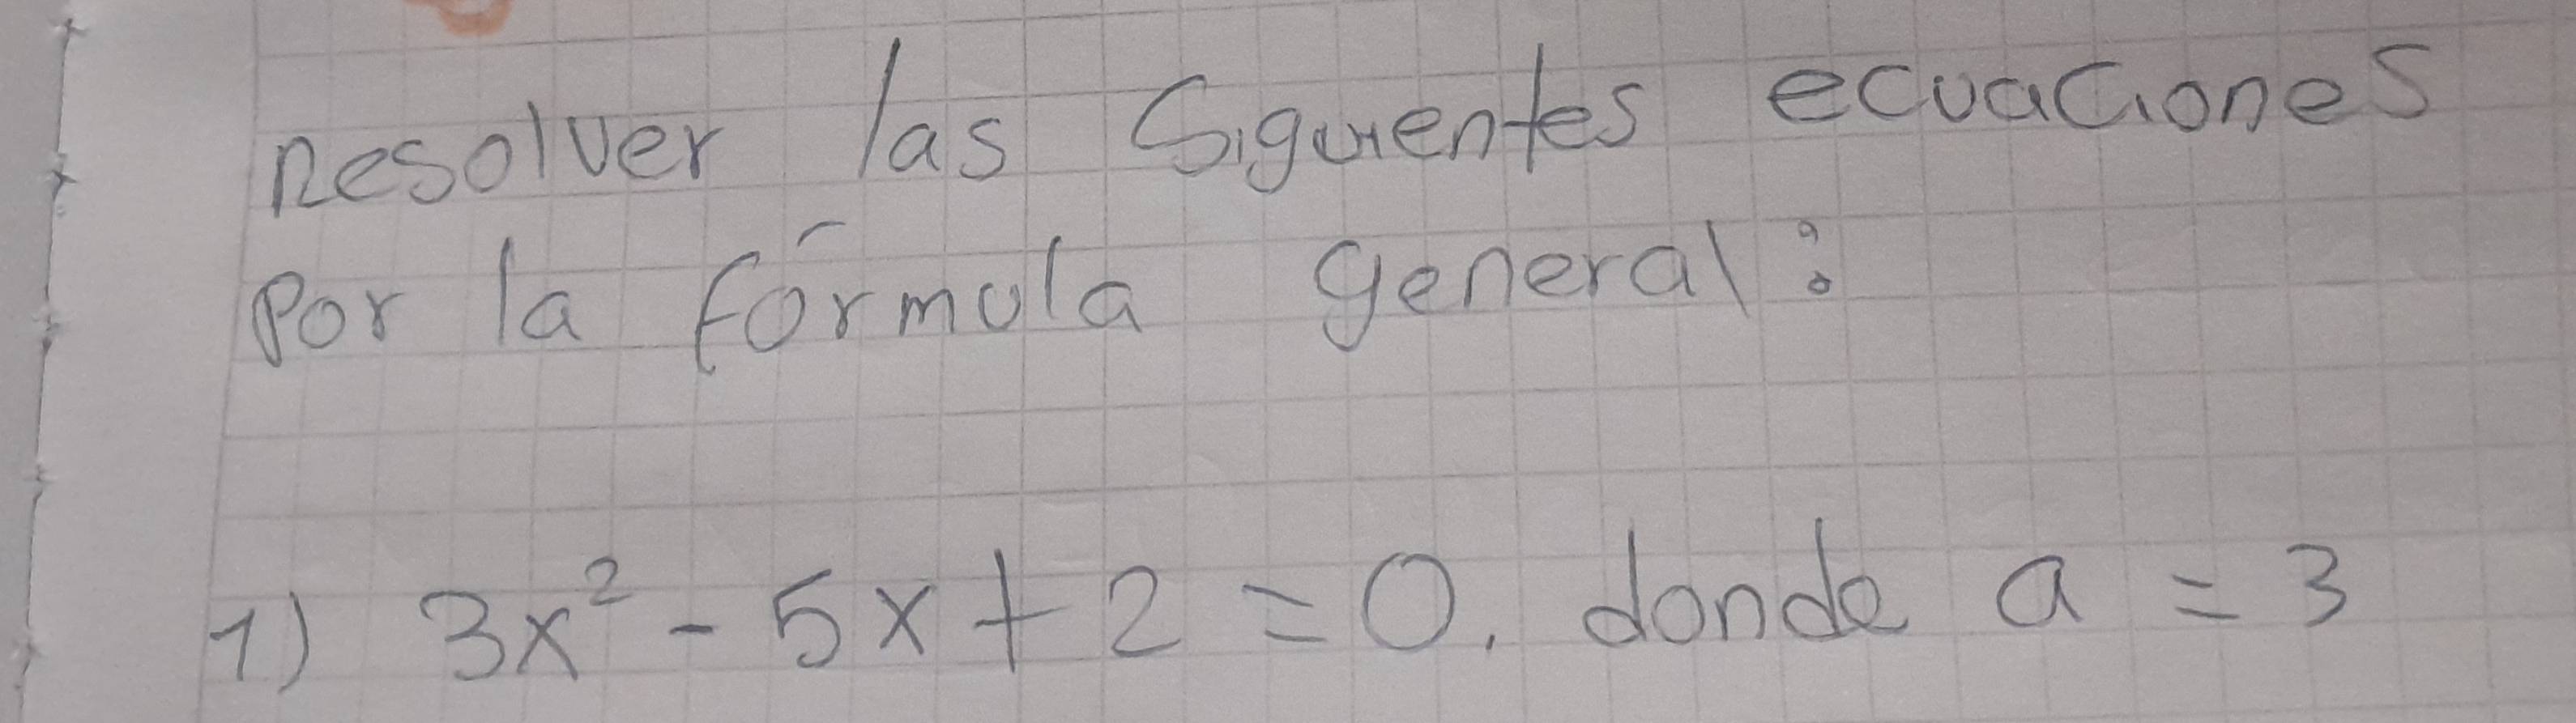 Resolver las Siguientes ecuaciones
Por la fórmula general:
1) 3x² - 5x + 2 = 0. donde a = 3